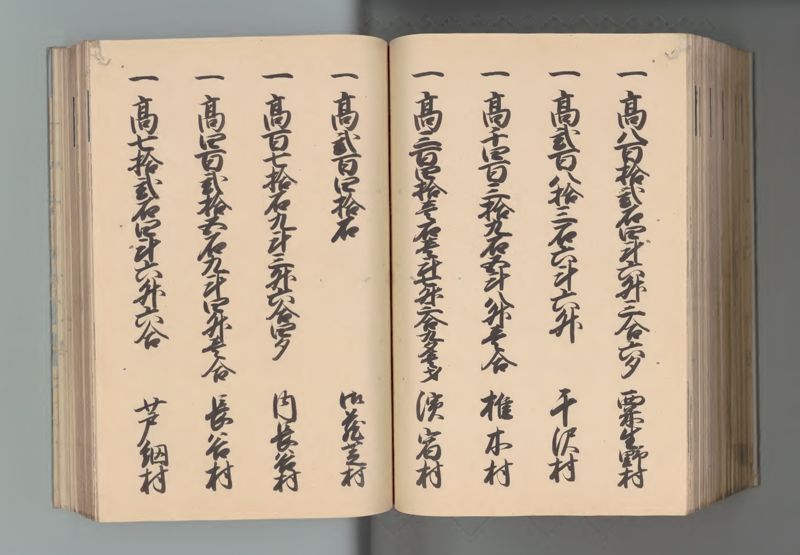 一 高八百拾弐石四斗六升三合六夕 粟生野村
一 高弐百八拾三石六斗六升 干沢村
一 高千四百三拾九石五斗八升壱合 椎木村
一 高三百四拾壱石壱斗七升三合九夕壱才 濱宿村
一 高弐百四拾石 村
一 高百七拾石九斗三升六合四夕 内長谷村
一 高四百弐拾五石九斗四升壱合 長谷村
一 高七拾弐石四斗六升六合 芦網村